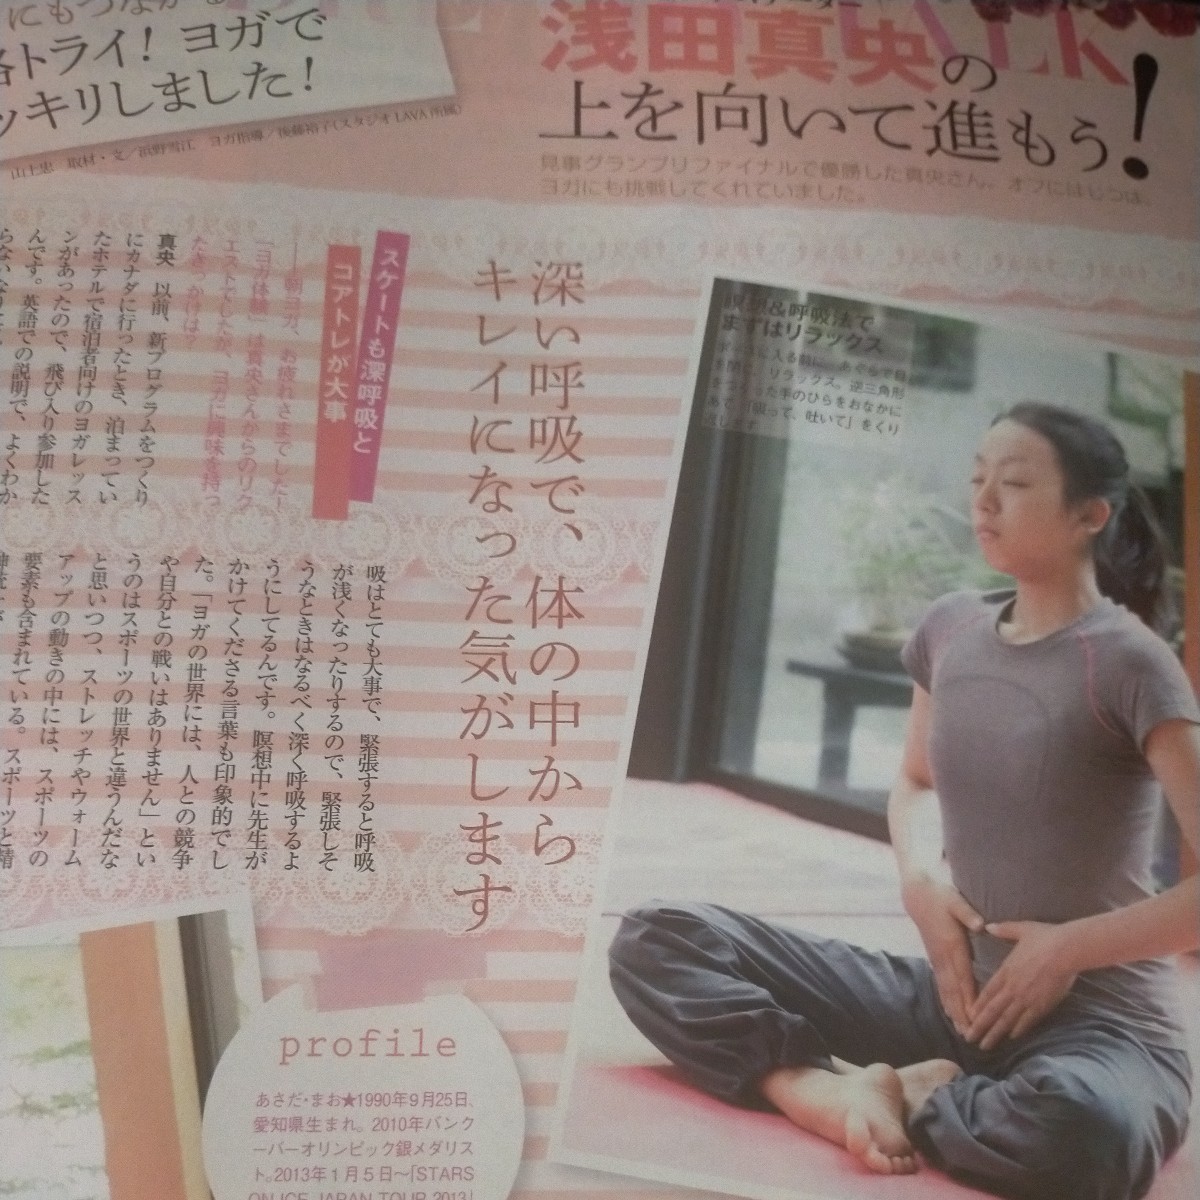 にもつながる
格トライ！ヨガで
ッキリしました！
山上忠　取材・文／浜野雪江　ヨガ指導／後藤裕子（スタジオLAVA所属）
浅田真央の
上を向いて進もう！
見事グランプリファイナルで優勝した真央さん。オフにはじつは、
ヨガにも挑戦してくれていました。
瞑想&呼吸法で
まずはリラックス
に入る前に、あぐらで目
を閉じ、リラックス。逆三角形
をつくった手のひらをおなかに
あて、「吸って、吐いて」をくり
返します
深い呼吸で、体の中から
キレイになった気がします
スケートも深呼吸と
コアトレが大事
――朝ヨガ、お疲れさまでした！
「ヨガ体験」は真央さんからのリク
エストでしたが、ヨガに興味を持っ
たきっかけは？
真央　以前、新プログラムをつくり
にカナダに行ったとき、泊まってい
たホテルで宿泊者向けのヨガレッス
ンがあったので、飛び入り参加した
んです。英語での説明で、よくわか
吸はとても大事で、緊張すると呼吸
が浅くなったりするので、緊張しそ
うなときはなるべく深く呼吸するよ
うにしてるんです。瞑想中に先生が
かけてくださる言葉も印象的でし
た。「ヨガの世界には、人との競争
や自分との戦いはありません」とい
うのはスポーツの世界と違うんだな
と思いつつ、ストレッチやウォーム
アップの動きの中には、スポーツの
要素も含まれている。スポーツと精
profile
あさだ・まお★1990年9月25日、
愛知県生まれ。2010年バンク
ーバーオリンピック銀メダリス
ト。2013年1月5日～「STARS
ON ICE JAPAN TOUR 2013」